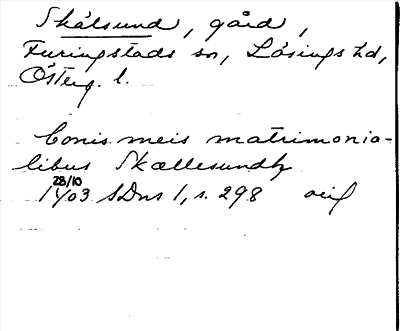 Skälsund, gård,
Furingstads sn, Lösings hd,
Österg. l.
bonis meis matrimonia-
libus Skællesundh
28/10
1403 SDns 1, s. 298 avs